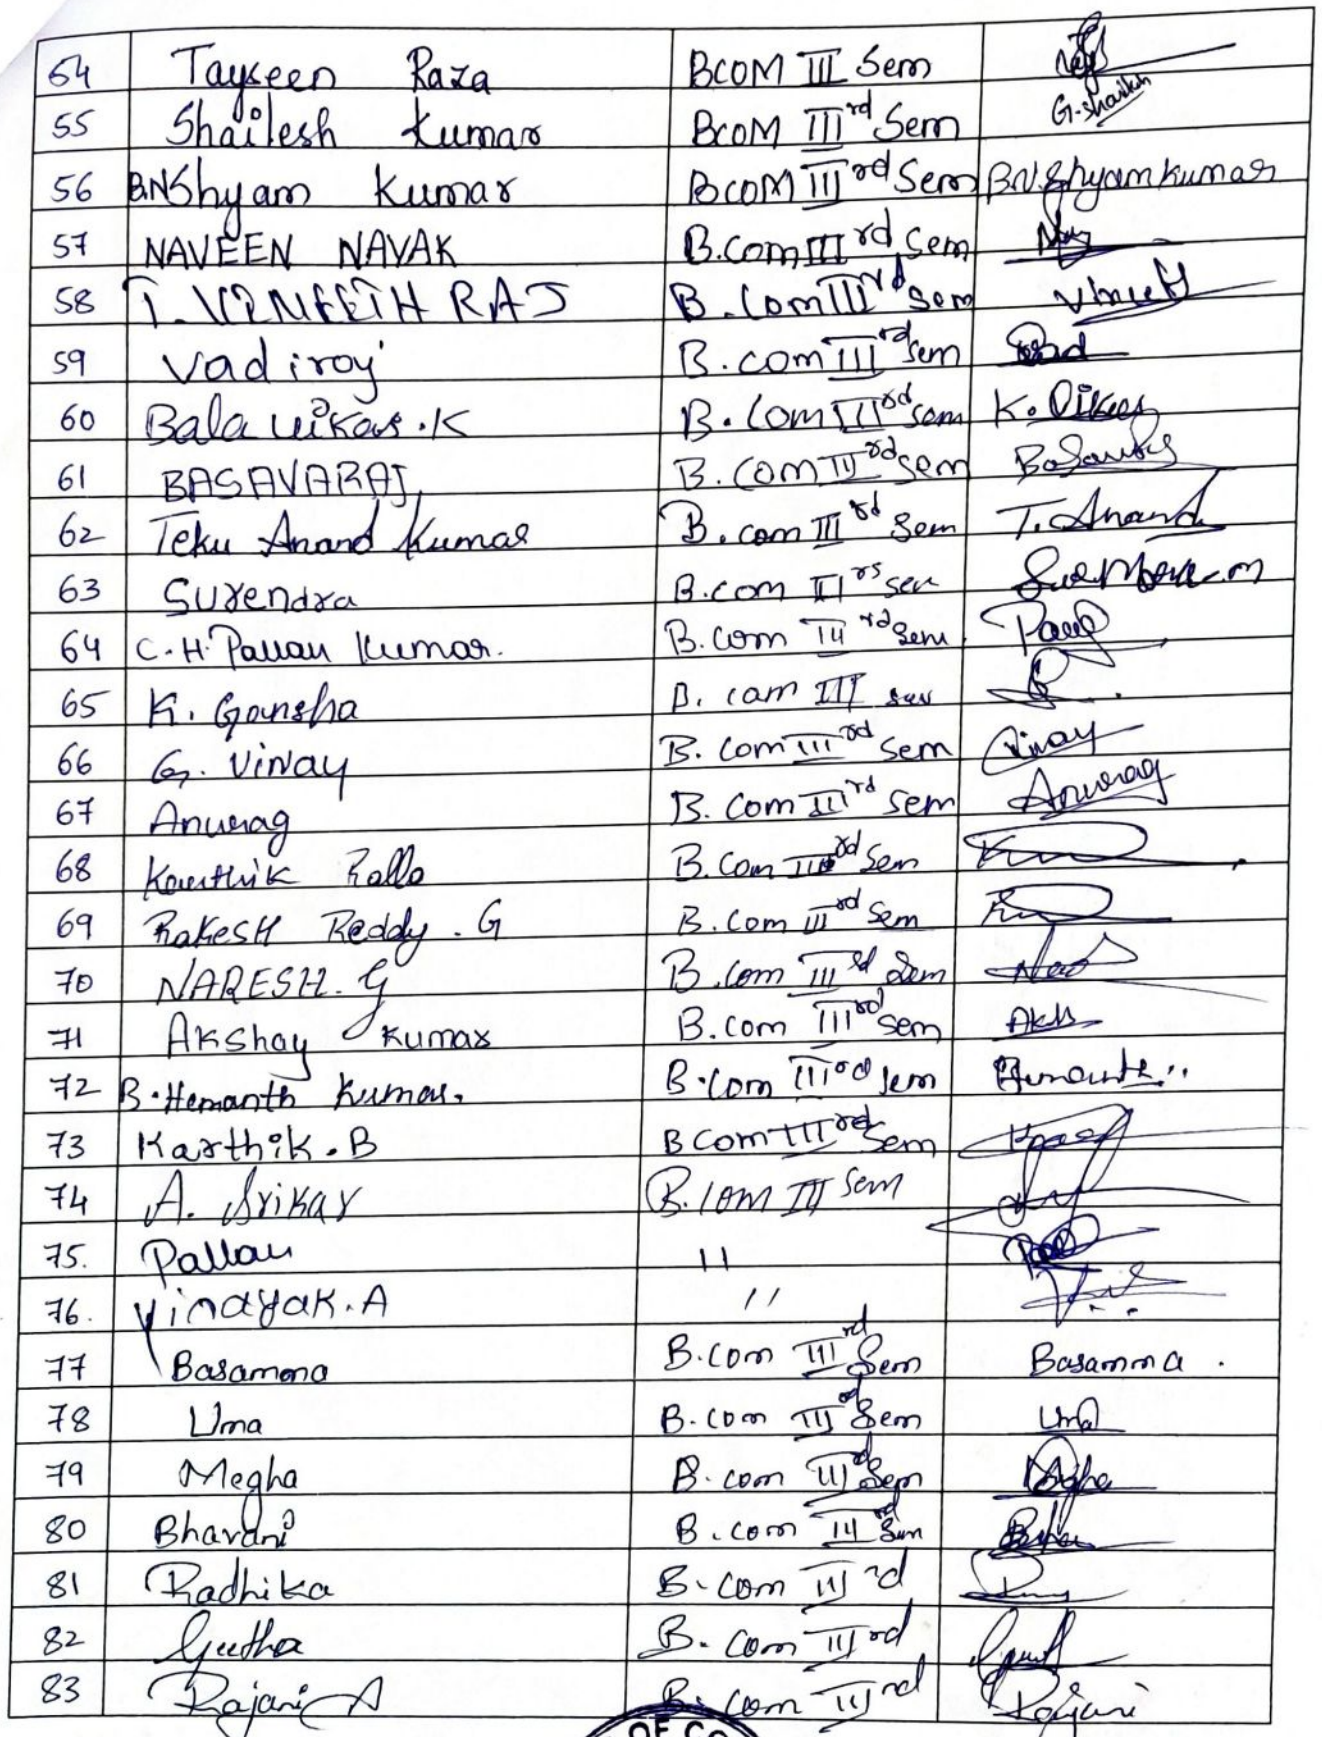 54 Tayseen Raza BCOM III Sem
55 Shailesh Kumar BCOM III rd Sem G. Shailesh
56 BN Shyam Kumar BCOM III rd Sem BN. Shyam Kumar
57 NAVEEN NAVAK B.com III rd Sem
58 T. VINEETH RAJ B. Com III rd Sem Vineeth
59 Vadiroj B. com III rd Sem
60 Bala vikas . K B. Com III rd sem K. Vikas
61 BASAVARAJ B. Com III rd sem Basavaraj
62 Teku Anand Kumar B. com III rd Sem T. Anand
63 Surendra B.com III rs sem
64 C. H. Pavan Kumar. B. Com III rd Sem
65 K. Gansha B. cam III
66 G. Vinay B. Com III rd Sem Vinay
67 Anurag B. Com III rd Sem Anurag
68 Karthik Rallo B. Com III rd Sem
69 RakesH Reddy . G B. Com III rd Sem
70 NARESH. G B. Com III rd Sem
71 Akshay Kumar B. com III rd sem
72 B. Hemanth Kumar. B. Com III rd sem Hemanth..
73 Karthik . B B Com III rd Sem
74 A. Srikar B. Com III Sem
75. Pallavi 11
76. Vinayak. A 11
77 Basamma B. Com III rd Sem Basamma .
78 Uma B. Com III rd Sem Uma
79 Megha B. Com III rd Sem Megha
80 Bhavani B. com III rd Sem
81 Radhika B. Com III rd
82 Geetha B. Com III rd
83 Rajani A B. Com III rd Rajani
OF CO